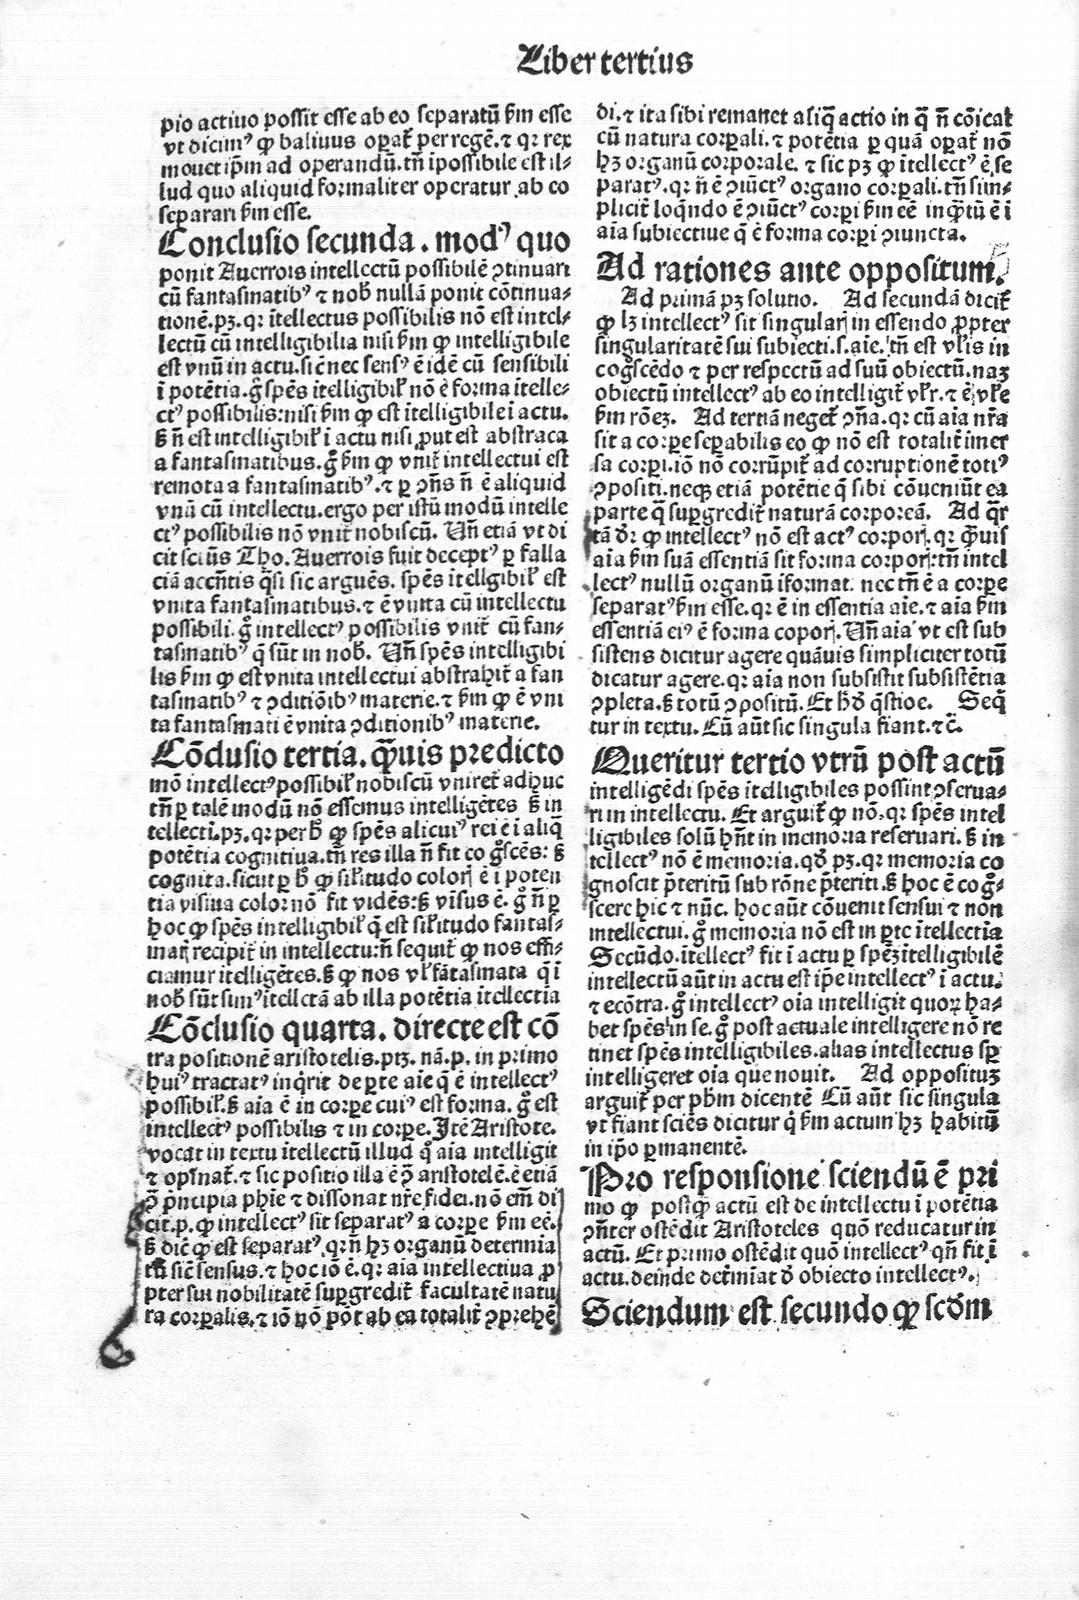 Liber tertius
pio actiuo possit esse ab eo separatū ẜm esse
vt dicimꝰ ꝙ baliuus oꝑat̉ per regē. ⁊ qꝛ rex
mouet ip̄m ad operandū. tn̄ īpossibile est il⸗
lud quo aliquid formaliter operatur ab eo
separari ẜm esse.
Conclusio secunda. modꝰ quo
ponit Auerrois intellectū possibilē ꝯtinuari
cū fantasmatibꝰ ⁊ nob̄ nullā ponit cōtinua⸗
tionē. pꝫ. qꝛ ītellectus possibilis nō est intel⸗
lectū cū intelligibilia nisi ẜm ꝙ intelligibile
est vnū in actu. sic̄ nec sensꝰ ē idē cū sensibili
ī potētia. g̊ spēs ītelligibil̉ nō ē forma ītelle⸗
ctꝰ possibilis: nisi ẜm ꝙ est ītelligibile ī actu.
ẜ n̄ est intelligibil̉ ī actu nisi ꝓut est abstraca
a fantasmatibus. g̊ ẜm ꝙ vnit̉ intellectui est
remota a fantasmatibꝰ. ⁊ ꝑ ꝯn̄s n̄ ē aliquid
vnū cū intellectu. ergo per istū modū intelle
ctꝰ possibilis nō vnit̉ nobiscū. Un̄ etiā vt di
cit sciūs Tho. Auerrois fuit deceptꝰ ꝑ falla
ciā accn̄tis q̄si sic arguēs. spēs ītellgibil̉ est
vnita fantasmatibus. ⁊ ē vnita cū intellectu
possibili. g̊ intellectꝰ possibilis vnit̉ cū fan⸗
tasmatibꝰ q̄ sūt in nob̄. Un̄ spēs intelligibi
lis ẜm ꝙ est vnita intellectui abstrahit̉ a fan
tasmatibꝰ ⁊ ꝯditiōibꝰ materie. ⁊ ẜm ꝙ ē vni
ta fantasmati ē vnita ꝯditionibꝰ materie.
Cōclusio tertia. q̄uis predicto
mō intellectꝰ possibil̉ nobiscū vniret̉ adhuc
tn̄ ꝑ talē modū nō essemus intelligētes ẜ in
tellecti. pꝫ. qꝛ per ħ ꝙ spēs alicuiꝰ rei ē ī aliq̄
potētia cognitiua. tn̄ res illa n̄ fit co g̊scēs: ẜ
cognita. sicut ꝑ ħ ꝙ sil̉itudo coloꝝ ē ī poten
tia visiua color nō fit vidēs: ẜ visus ē. g̊ n̄ ꝑ
hoc ꝙ spēs intelligibil̉ q̄ est sil̉itudo fantas⸗
matꝝ recipit̉ in intellectu: n̄ sequit̉ ꝙ nos effi⸗
ciamur ītelligētes. ẜ ꝙ nos vl̉ fātasmata q̄ ī
nob̄ sūt sumꝰ ītellctā ab illa potētia ītellectia
Cōclusio quarta. directe est cō
tra positionē aristotelis. ptꝫ. nā. p. in primo
huiꝰ tractatꝰ inq̄rit de ꝑte aīe q̄ ē intellectꝰ
possibil̉. ẜ aīa ē in corꝑe cuiꝰ est forma. g̊ est
intellectꝰ possibilis ⁊ in corꝑe. Itē Aristote.
vocat in textu ītellectū illud q̊ aīa intelligit
⁊ opīnat̉. ⁊ sic positio illa ē ꝯ̄ aristotelē. ē etiā
ꝯ̄ p̄ncipia phīe ⁊ dissonat nr̄e fidei. nō em̄ di
cit. p. ꝙ intellectꝰ sit separatꝰ a corꝑe ẜm eē.
ẜ dic̄ ꝙ est separatꝰ. qꝛ n̄ hꝫ organū determia
tū sic̄ sensus. ⁊ hoc iō ē. qꝛ aīa intellectiua ꝓ
pter sui nobilitatē suꝑgredit̉ facultatē natu
ra corꝑalis. ⁊ iō nō pōt ab ea totalit̉ ꝯprehē
di. ⁊ ita sibi remanet aliq̄ actio in q̄ n̄ cōīcat
cū natura corꝑali. ⁊ potētia ꝑ quā oꝑat̉ nō
hꝫ organū corporale. ⁊ sic pꝫ ꝙ ītellectꝰ ē se
paratꝰ. qꝛ n̄ ē ꝯiūctꝰ organo corꝑali. tn̄ sim⸗
plicit̉ loq̄ndo ē ꝯiūctꝰ corꝑi ẜm eē inq̄tū ē ī
aīa subiectiue q̄ ē forma corꝑi ꝯiuncta.
Ad rationes ante oppositum.
Ad primā pꝫ solutio. Ad secundā dicit̉
ꝙ lꝫ intellectꝰ sit singularꝭ in essendo ꝓpter
singularitatē sui subiecti. s. aīe. tn̄ est vl̉is in
cog̊scēdo ⁊ per respectū ad suū obiectū. naꝫ
obiectū intellectꝰ ab eo intelligit̉ vl̉r. ⁊ ē vl̉e
ẜm rōeꝫ. Ad tertiā neget̉ ꝯn̄a. qꝛ cū aīa nr̄a
sit a corꝑe seꝑabilis eo ꝙ nō est totalit̉ imer
sa corꝑi. iō nō corrūpit̉ ad corruptionē totiꝰ
ꝯpositi. neqꝫ etiā potētie q̄ sibi cōueniūt ea
parte q̄ suꝑgredit̉ naturā corporeā. Ad q̄r
tā dr̄ ꝙ intellectꝰ nō est actꝰ corporꝭ. qꝛ q̄uis
aīa ẜm suā essentiā sit forma corporꝭ: tn̄ intel
lectꝰ nullū organū īformat. nec tn̄ ē a corꝑe
separatꝰ ẜm esse. qꝛ ē in essentia aīe. ⁊ aīa ẜm
essentiā eiꝰ ē forma coporꝭ. Un̄ aīa vt est sub
sistens dicitur agere quāuis simpliciter totū
dicatur agere. qꝛ aīa non subsistit subsistētia
ꝯpleta. ẜ totū ꝯpositū. Et ħ d̄ q̄stioe. Seq̄
tur in textu. Cū aūt sic singula fiant. ⁊ c̄.
Queritur tertio vtrū post actū
intelligēdi spēs ītelligibiles possint ꝯserua⸗
ri in intellectu. Et arguit̉ ꝙ nō. qꝛ spēs intel
ligibiles solū hn̄t in memoria reseruari. ẜ in
tellectꝰ nō ē memoria. qd̄ pꝫ. qꝛ memoria co
gnoscit p̄teritū sub rōne p̄teriti. ẜ hoc ē cog̊⸗
scere hic ⁊ nūc. hoc aūt cōuenit sensui ⁊ non
intellectui. g̊ memoria nō est in ꝑte ītellectia
Secūdo. ītellectꝰ fit ī actu ꝑ spēꝫ ītelligibilē
intellectū aūt in actu est ip̄e intellectꝰ ī actu.
⁊ ecōtra. g̊ intellectꝰ oīa intelligit quoꝝ ha⸗
bet spēs in se. g̊ post actuale intelligere nō re
tinet spēs intelligibiles. alias intellectus sꝑ
intelligeret oīa que nouit. Ad oppositus
arguit̉ per phm̄ dicentē Cū aūt sic singula
vt fiant sciēs dicitur q̄ ẜm actum hꝫ habitū
in ip̄o ꝑmanentē.
Pro responsione sciendū ē pri
mo ꝙ postꝙ̄ actū est de intellectu ī potētia
ꝯn̄ter ostēdit Aristoteles quō reducatur in
actū. Et primo ostēdit quō intellectꝰ qn̄ fit ī
actu. deinde det̉miat d̄ obiecto intellectꝰ.
Sciendum est secundo ꝙ scd̄m